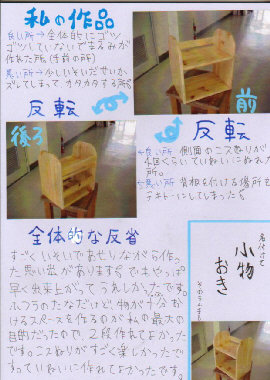 私の作品
良い所→全体的にゴツ
ゴツしていないでまるみが
作れた所(手前の所)
悪い所→少しいそいだせいか、
ズレてしまって ガタガタする所。
反転
前
後ろ
反転
良い所 側面のニスぬりが
ていねいにぬれた
所。
悪い所 背板を付ける場所を
テキトーにしてしまった。
全体的な反省
すごくいそいであせりながら作っ
た思い出があります。でもやっぱ、
早く出来上がって うれしかったです。
ふつうのたなだけど、物が十分お
けるスペースを作るのが私の最大の
目的だったので、2段作れてよかった
です。ニスぬりがすごく楽しかったで
すっていねいに作れてよかったです。
名付けて
小物
おき
そのまんま